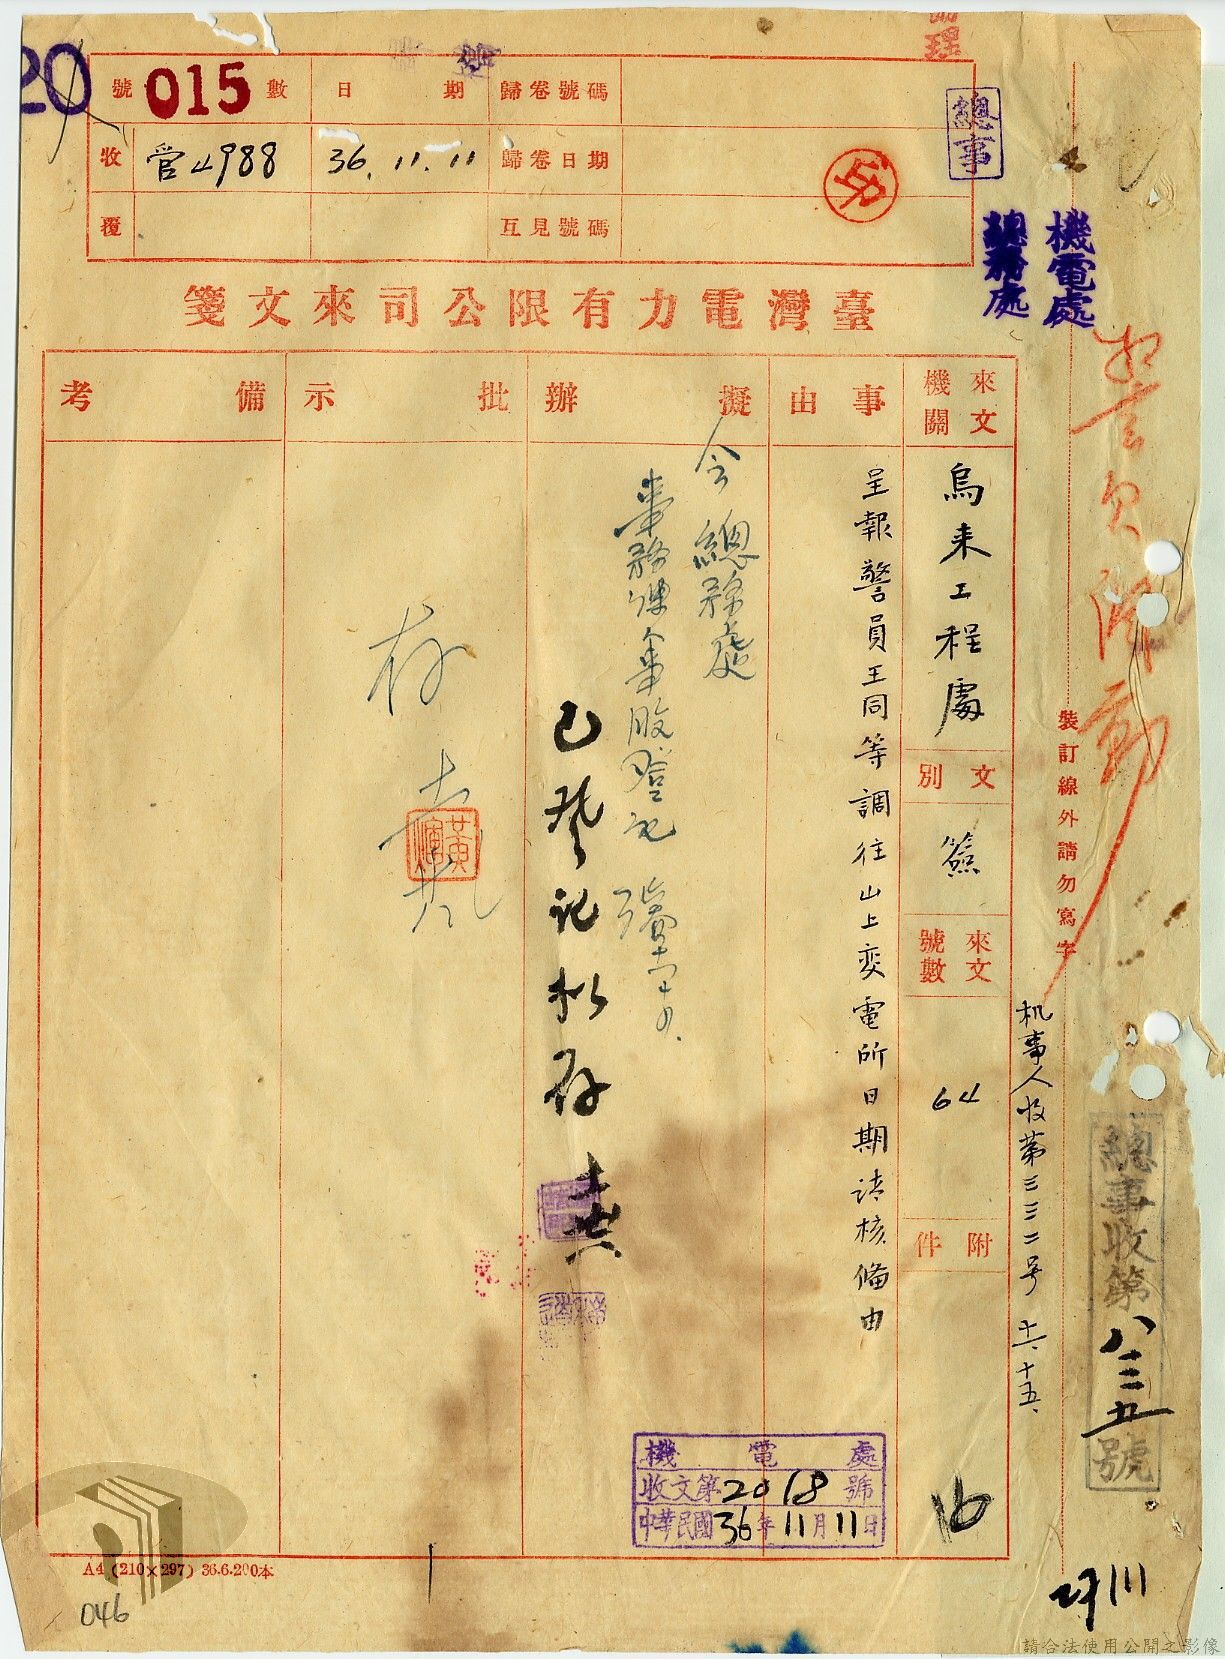 20
號 015 數 日期 歸卷號碼
收 管4988 36.11.11 歸卷日期
覆 互見號碼
總事
機電處
總務處
臺灣電力有限公司來文箋
來文機關
烏来工程處
文別
簽
來文號數
64
附件
事由
呈報警員王同等調往山上変電所日期請核備由
擬辦
会總務處
已登記拟存
批示
存
備考
裝訂線外請勿寫字
机事人收第三三二号 十一、十五、
總事收第八三五號
機電處
收文第2018號
中華民國36年11月11日
A4 (210×297) 36.6.200本
046
請合法使用公開之影像